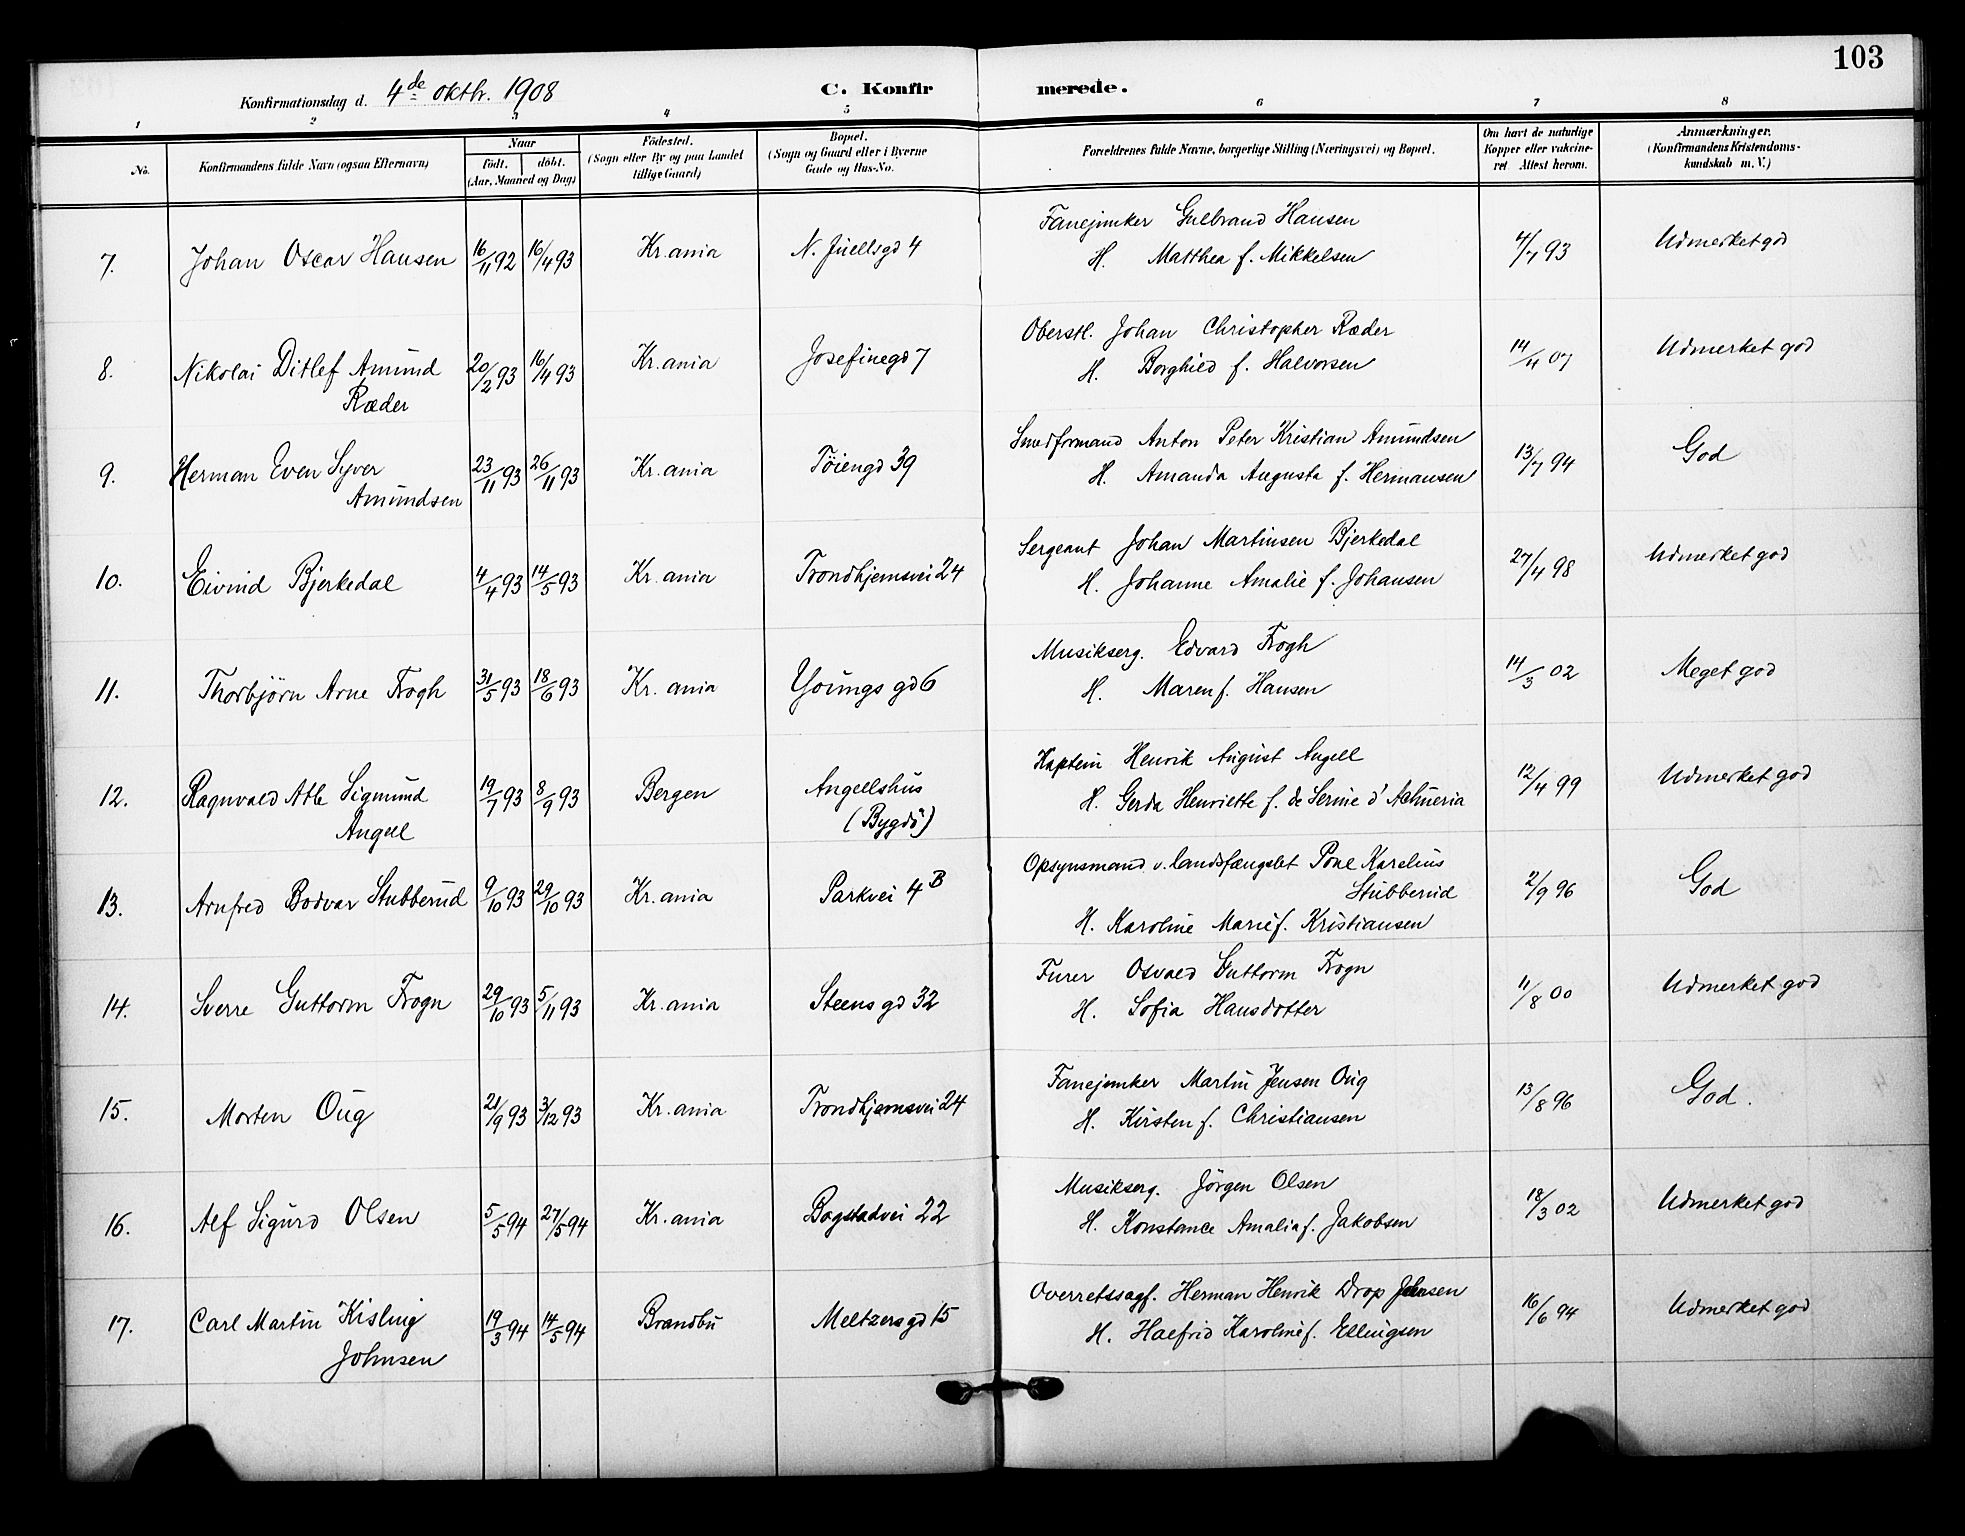 103
Konfirmationsdag d. 4de oktbr. 1908
C. Konfirmerede.
1 2 3 4 5 6 7 8
No.
Konfirmandens fulde Navn (ogsaa Efternavn)
Naar
födt. döbt.
(Aar, Maaned og Dag)
Födested.
(Sogn eller By og paa Landet
tillige Gaard)
Bopæl.
(Sogn og Gaard eller i Byerne
Gade og Hus-No.
Forældrenes fulde Navne, borgerlige Stilling (Næringsvei) og Bopæl.
Om havt de naturlige
Kopper eller vakcine-
ret. Attest herom.
Anmærkninger.
(Konfirmandens Kristendoms-
kundskab m. V.)
7. Johan Oscar Hansen 16/11 92 16/4 93 Kr.ania N. Juellsgd 4 Fanejunker Gulbrand Hansen 4/7 93 Udmerket god
H. Matthea f. Mikkelsen
8. Nikolai Ditlef Amund 20/2 93 16/4 93 Kr.ania Josefinegd 7 Oberstl. Johan Christopher Ræder 14/11 07 Udmerket god
Ræder H. Borghild f. Halvorsen
9. Herman Even Syver 23/11 93 26/11 93 Kr.ania Töiengd 39 Smedformand Anton Peter Kristian Amundsen 13/7 94 God
Amundsen H. Amanda Augusta f. Hermansen
10. Eivind Bjerkedal 4/4 93 14/5 93 Kr.ania Trondhjemsvei 24 Sergeant Johan Martinsen Bjerkedal 27/4 98 Udmerket god
H. Johanne Amalie f. Johansen
11. Thorbjörn Arne Frogh 31/5 93 18/6 93 Kr.ania Youngs gd 6 Musikserg. Edvard Frogh 14/3 02 Meget god
H. Maren f. Hansen
12. Ragnvald Atle Sigmund 19/7 93 8/9 93 Bergen Angellshus Kaptein Henrik August Angell 12/4 99 Udmerket god
Angell (Bygdö) H. Gerda Henriette f. de Serine d'
13. Arnfred Bodvar Stubberud 9/10 93 29/10 93 Kr.ania Parkvei 4 B Opsynsmand v. landsfængslet Poul Karelius 2/9 96 God
Stubberud
H. Karoline Marie f. Kristiansen
14. Sverre Guttorm Frogn 29/10 93 5/11 93 Kr.ania Steens gd 32 Furer Osvald Guttorm Frogn 11/8 00 Udmerket god
H. Sofia Hansdotter
15. Morten Oug 21/9 93 3/12 93 Kr.ania Trondhjemsvei 24 Fanejunker Martin Jensen Oug 13/8 96 God.
H. Kirsten f. Christiansen
16. Alf Sigurd Olsen 5/5 94 27/5 94 Kr.ania Bogstadvei 22 Musikserg. Jörgen Olsen 18/3 02 Udmerket god
H. Konstance Amalia f. Jakobsen
17. Carl Martin Kisling 19/3 94 14/5 94 Brandbu Meltzersgd 15 Overretssagf. Herman Henrik Drop Johnsen 16/6 94 Udmerket god
Johnsen H. Halfrid Karoline f. Ellingsen